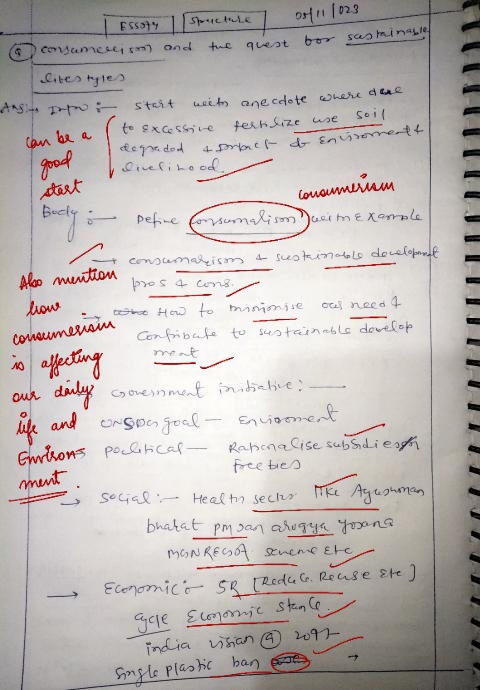 Essay Structure 05/11/023
Q consumerism and the quest for sustainable
lifestyles
Ans:- Intro:- start with anecdote where due
to excessive fertilize use soil
degraded & impact
livelihood.
can be a
good
start
consumerism
Body:- Define consumalism with Example
→ consumarism & sustainable development
pros & cons.
→ How to minimise our need &
contribute to sustainable develop
ment
Also mention
how
consumerism
is affecting
our daily
life and
Environ-
ment.
Government initiative:-
goal - Enviroment
poclitical - Rationalise subsidies
freebies
→ social:- Health sector like Ayushman
bharat pm Jan arogya yojana
scheme etc
→ Economic:- 5R [Reduce. Reuse Etc]
Economic stance.
india vision @ 2047
single plastic ban →